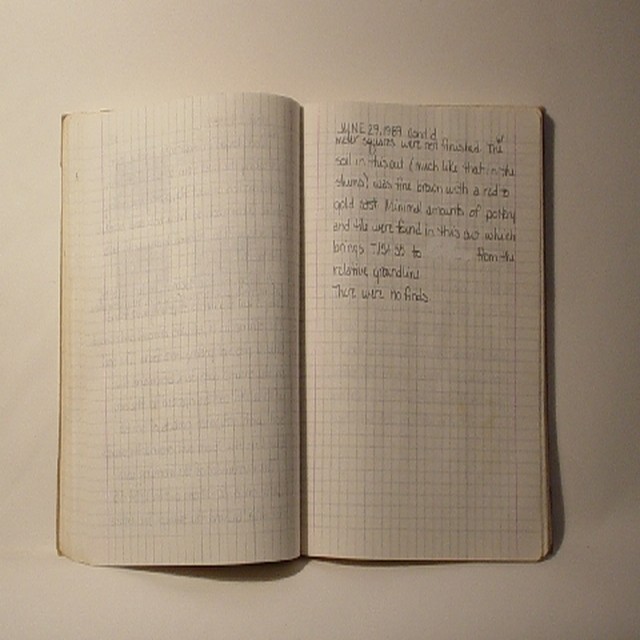 JUNE 29, 1989 Cont'd
meter squares were not finished. The
soil in this cut (much like that in the
was fine brown with a red to
gold cast. Minimal amounts of pottery
and tile were found in this cut which
brings to from the
relative groundline
There were no finds